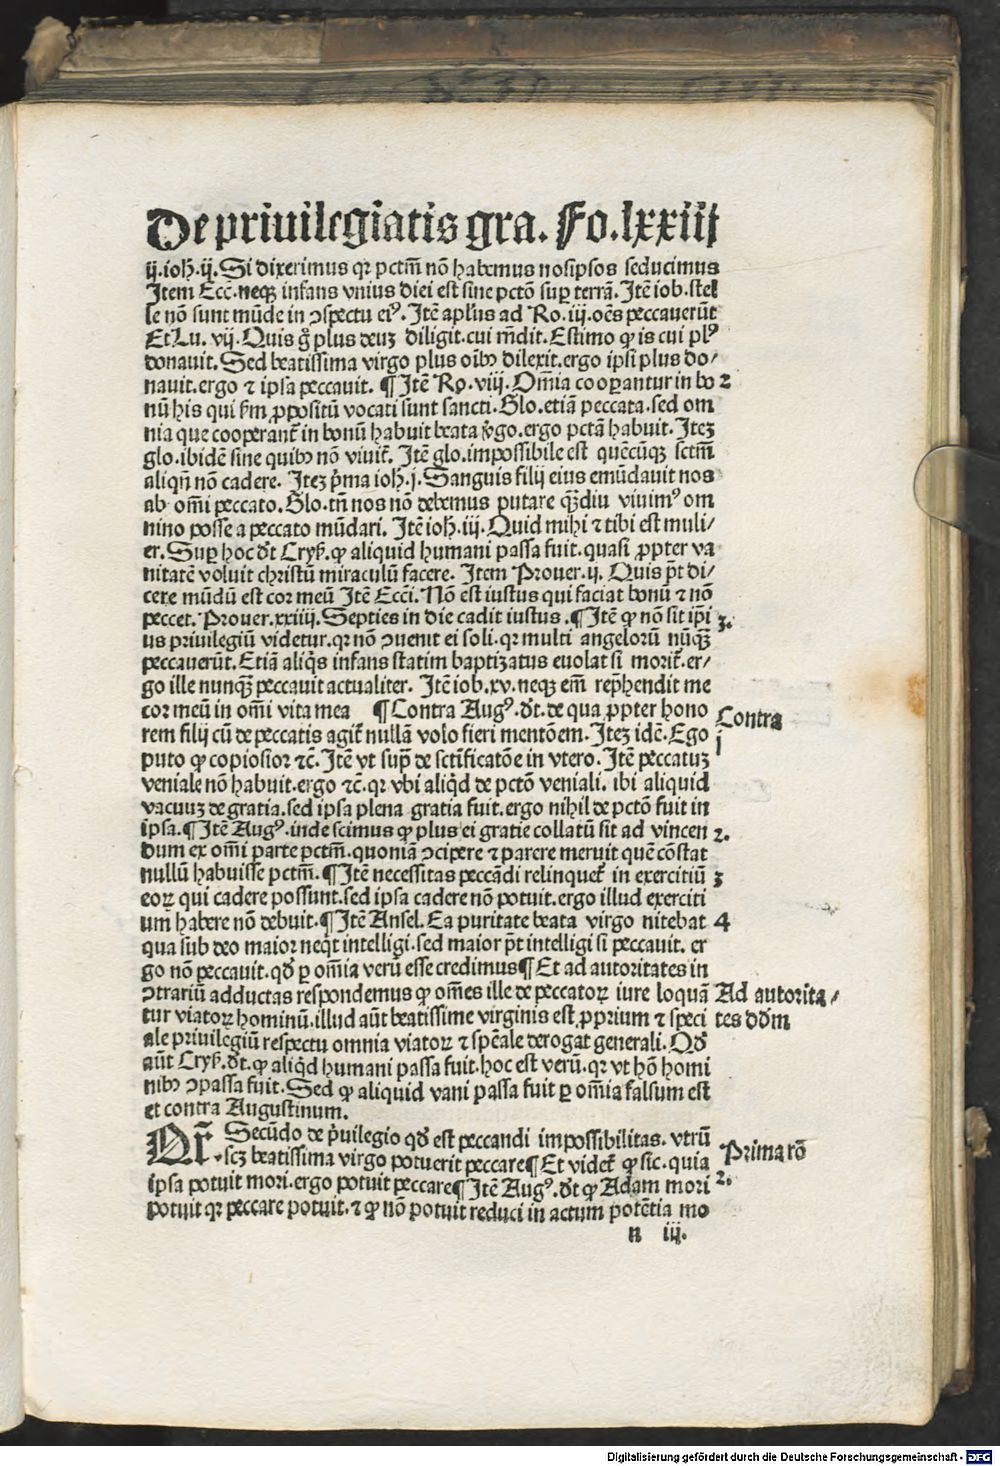 De priuilegiatis gra. Fo. lxxiiij
ij. ioh̄. ij. Si dixerimus qꝛ pctm̄ nō habemus nosipsos seducimus
Item Ecc̄. neqꝫ infans vnius diei est sine pctō suꝑ terrā. Itē iob. stel
le nō sunt mūde in ↄspectu eiꝰ. Itē apl̓us ad Ro. iij. oēs peccauerūt
Et Lu. vij. Quis g̊ plus deuꝫ diligit. cui m̄dit. Estimo ꝙ is cui plꝰ
donauit. Sed beatissima virgo plus oibꝰ dilexit. ergo ipsi plus do⸗
nauit. ergo ⁊ ipsa peccauit. ¶ Itē Ro. viij. Om̄ia cooꝑantur in bo 2
nū his qui ẜm ꝓpositū vocati sunt sancti. Glo. etiā peccata. sed om
nia que cooperant̄ in bonū habuit beata v̓go. ergo pctā habuit. Iteꝫ
glo. ibidē sine quibꝰ nō viuit̄. Itē glo. impossibile est quēcūqꝫ sctm̄
aliqn̄ nō cadere. Iteꝫ p̓ma ioh̄. j. Sanguis filij eius emūdauit nos
ab om̄i peccato. Glo. tn̄ nos nō debemus putare qꝫ̄diu viuimꝰ om
nino posse a peccato mūdari. Itē ioh̄. iij. Quid mihi ⁊ tibi est muli⸗
er. Suꝑ hoc dt̄ Crys̄. ꝙ aliquid humani passa fuit. quasi ꝓpter va
nitatē voluit christū miraculū facere. Item Prouer. ij. Quis pt̄ di⸗
cere mūdū est cor meū Itē Eccī. Nō est iustus qui faciat bonū ⁊ nō
peccet. Prouer. xxiiij. Septies in die cadit iustus. ¶ Itē ꝙ nō sit ip̄i 3.
us priuilegiū videtur. qꝛ nō ↄuenit ei soli. qꝛ multi angelorū nūqꝫ̄
peccauerūt. Etiā aliq̓s infans statim baptizatus euolat si morit̄. er⸗
go ille nunqꝫ̄ peccauit actualiter. Itē iob. xv. neqꝫ em̄ rep̄hendit me
cor meū in om̄i vita mea ¶ Contra Augꝰ. dt̄. de qua ꝓpter hono
Contra
rem filij cū de peccatis agit̄ nullā volo fieri mentōem. Iteꝫ idē. Ego
1
puto ꝙ copiosior ⁊c̄. Itē vt supꝰ de sctificatōe in vtero. Itē peccatuꝫ
veniale nō habuit. ergo ⁊c̄. qꝛ vbi aliq̓d de pctō veniali. ibi aliquid
vacuuꝫ de gratia. sed ipsa plena gratia fuit. ergo nihil de pctō fuit in
ipsa. ¶ Itē Augꝰ. inde scimus ꝙ plus ei gratie collatū sit ad vincen 2.
dum ex om̄i parte pctm̄. quoniā ↄcipere ⁊ parere meruit quē cōstat
nullū habuisse pctm̄. ¶ Itē necessitas peccādi relinquet̄ in exercitiū 3
eoꝝ qui cadere possunt. sed ipsa cadere nō potuit. ergo illud exerciti
um habere nō debuit. ¶ Itē Ansel. Ea puritate beata virgo nitebat 4
qua sub deo maior neq̓t intelligi. sed maior pt̄ intelligi si peccauit. er
go nō peccauit. qd̓ ꝑ om̄ia verū esse credimus ¶ Et ad autoritates in
ↄtrariū adductas respondemus ꝙ om̄es ille de peccatoꝝ iure loquā
Ad autorita⸗
tur viatoꝝ hominū. illud aūt beatissime virginis est ꝓprium ⁊ speci
tes dd̄m
ale priuilegiū respectu omnia viatoꝝ ⁊ spēale derogat generali. Qd̓
aūt Crys̄. dt̄. ꝙ aliq̓d humani passa fuit. hoc est verū. qꝛ vt hō homi
nibꝰ ↄpassa fuit. Sed ꝙ aliquid vani passa fuit ꝑ om̄ia falsum est
et contra Augustinum.
Qr̄. Secūdo de p̓uilegio qd̓ est peccandi impossibilitas. vtrū
scꝫ beatissima virgo potuerit peccare ¶ Et videt̄ ꝙ sic. quia
Prima rō
ipsa potuit mori. ergo potuit peccare ¶ Itē Augꝰ. dt̄ ꝙ Adam mori 2.
potuit qꝛ peccare potuit. ⁊ ꝙ nō potuit reduci in actum potētia mo
n iij.
Digitalisierung gefördert durch die Deutsche Forschungsgemeinschaft - DFG